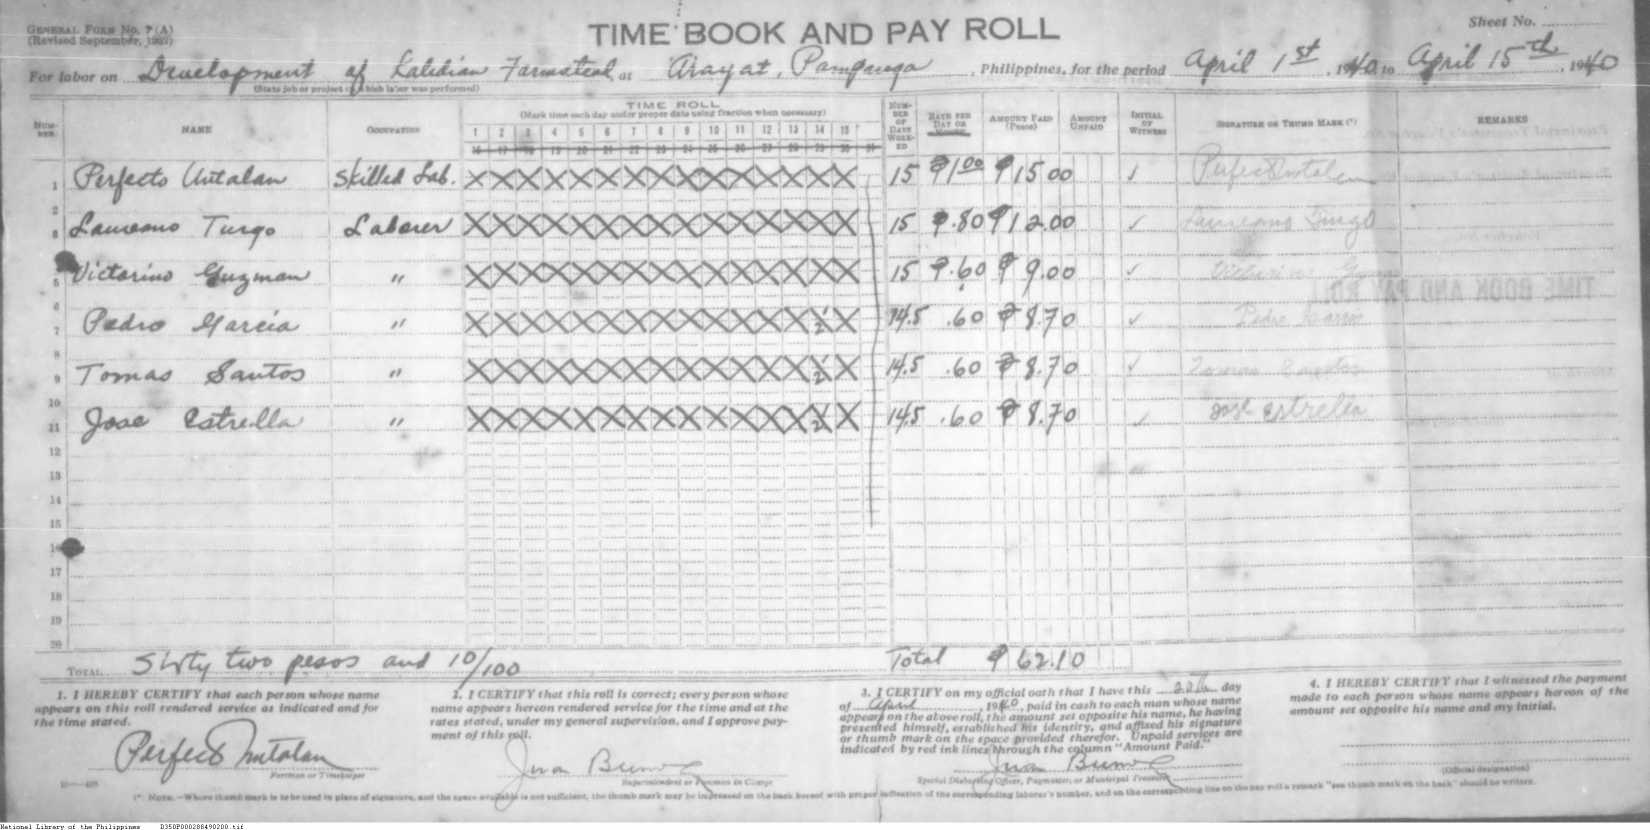 GENERAL FORM No. 7 (A)
(Revised September, 1927)
TIME BOOK AND PAY ROLL
Sheet No.
For labor on Development of Kalidian Farmstead at Arayat, Pampanga, Philippines, for the period April 1st, 1940 to April 15th, 1940
(State job or project on which labor was performed)
NUMBER NAME OCCUPATION TIME ROLL NUMBER OF DAYS WORKED RATE PER DAY OR MONTH AMOUNT PAID (Pesos) AMOUNT UNPAID INITIAL OF WITNESS SIGNATURE OR THUMB MARK (*) REMARKS
(Mark time each day under proper date using fraction when necessary)
1 2 3 4 5 6 7 8 9 10 11 12 13 14 15
16 17 18 19 20 21 22 23 24 25 26 27 28 29 30 31
1 Perfecto Untalan Skilled Lab. X X X X X X X X X X X X X X X 15 ₱1.00 ₱15.00 ✓ Perfecto Untalan
2
3 Laureano Turgo Laborer X X X X X X X X X X X X X X X 15 ₱.80 ₱12.00 ✓ Laureano Turgo
5 Victorino Guzman " X X X X X X X X X X X X X X X 15 ₱.60 ₱9.00 ✓
6
7 Pedro Garcia " X X X X X X X X X X X X X 1/2 X 14.5 .60 ₱8.70 ✓ Pedro Garcia
8
9 Tomas Santos " X X X X X X X X X X X X X 1/2 X 14.5 .60 ₱8.70 ✓ Tomas Santos
10
11 Jose Estrella " X X X X X X X X X X X X X 1/2 X 14.5 .60 ₱8.70 ✓ Jose Estrella
12
13
14
15
16
17
18
19
20
TOTAL Sixty two pesos and 10/100 Total ₱62.10
1. I HEREBY CERTIFY that each person whose name
appears on this roll rendered service as indicated and for
the time stated.
Perfecto Untalan
Foreman or Timekeeper
2. I CERTIFY that this roll is correct; every person whose
name appears hereon rendered service for the time and at the
rates stated, under my general supervision, and I approve pay-
ment of this roll.
Juan
Superintendent or Foreman in Charge
3. I CERTIFY on my official oath that I have this day
of April, 1940, paid in cash to each man whose name
appears on the above roll, the amount set opposite his name, he having
presented himself, established his identity, and affixed his signature
or thumb mark on the space provided therefor. Unpaid services are
indicated by red ink lines through the column "Amount Paid."
Juan
Special Disbursing Officer, Paymaster, or Municipal Treasurer
4. I HEREBY CERTIFY that I witnessed the payment
made to each person whose name appears hereon of the
amount set opposite his name and my initial.
(Official designation)
(* NOTE.—Where thumb mark is to be used in place of signature, and the space available is not sufficient, the thumb mark may be impressed on the back hereof with proper indication of the corresponding laborer's number, and on the corresponding line on the pay roll a remark "see thumb mark on the back" should be written.
National Library of the Philippines D350P000288490200.tif